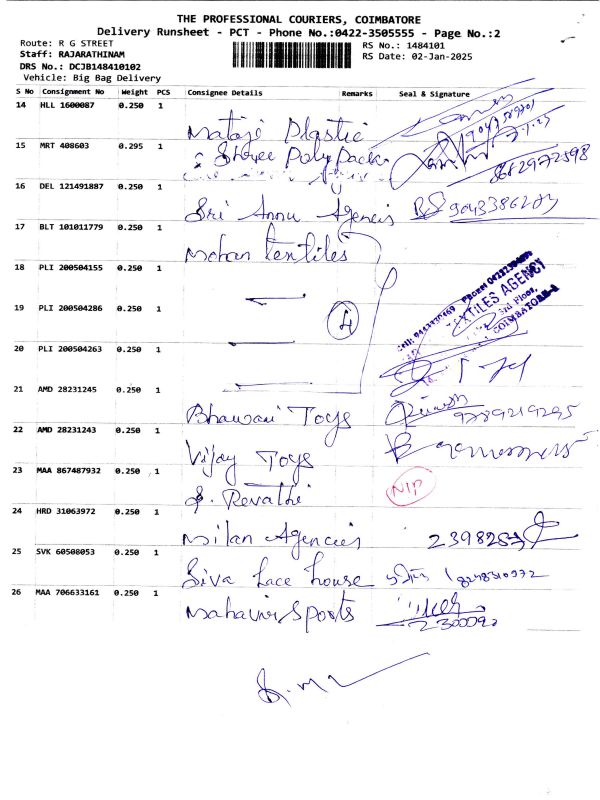 THE PROFESSIONAL COURIERS, COIMBATORE
Delivery Runsheet - PCT - Phone No.:0422-3505555 - Page No.:2
Route: R G STREET
RS No.: 1484101
Staff: RAJARATHINAM
RS Date: 02-Jan-2025
DRS No.: DCJB148410102
Vehicle: Big Bag Delivery
S No Consignment No Weight PCS Consignee Details Remarks Seal & Signature
14 HLL 1600087 0.250 1 Mataji Plastic
15 MRT 408603 0.295 1 Shree Poly Pack 8682972898
16 DEL 121491887 0.250 1 Sri Annu Agencies
17 BLT 101011779 0.250 1 Mohan Textiles
18 PLI 200504155 0.250 1
19 PLI 200504286 0.250 1 4
20 PLI 200504263 0.250 1
TEXTILES AGENCY
3rd Floor,
COIMBATORE-1
21 AMD 28231245 0.250 1 Bhawani Toys 9789219295
22 AMD 28231243 0.250 1 Vijay Toys
23 MAA 867487932 0.250 1 S. Revathi NIP
24 HRD 31063972 0.250 1 Milan Agencies
25 SVK 60508053 0.250 1 Siva Lace House 8248310372
26 MAA 706633161 0.250 1 Mahavir Sports